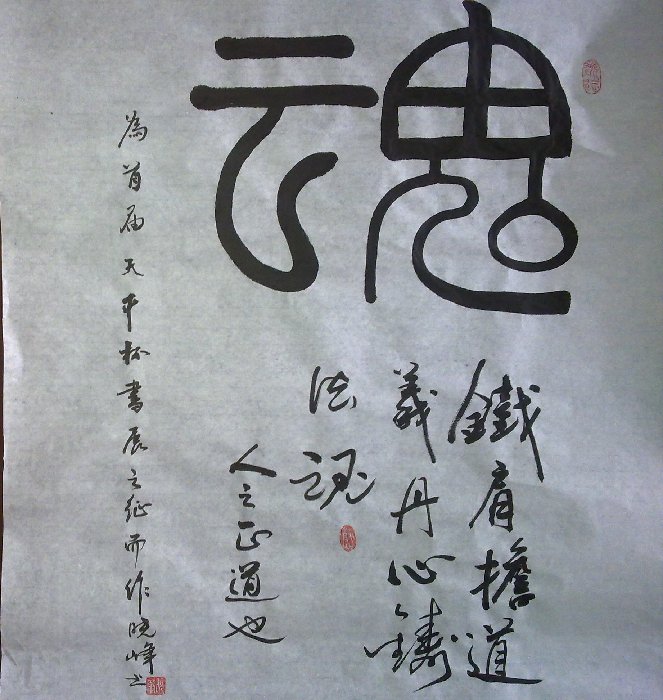 魂
鐵肩擔道
義丹心鑄
法魂
人之正道也
為首届天平杯書展之征而作曉峰书